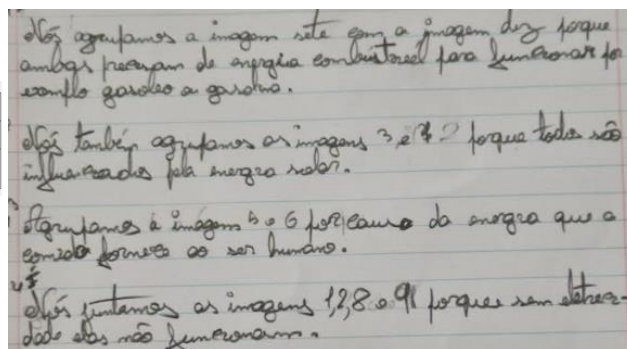 Nós agrupamos a imagem sete com a imagem dez porque
ambas precisam de energia combustível para funcionar por
exemplo gasóleo ou gasolina.
Nós também agrupamos as imagens 3 e porque todos são
influenciados pela energia solar.
Agrupamos a imagem 5 e 6 por causa da energia que a
comida fornece ao ser humano.
Nós juntamos as imagens 1,2,8 e porque sem eletrici-
dade elas não funcionam.